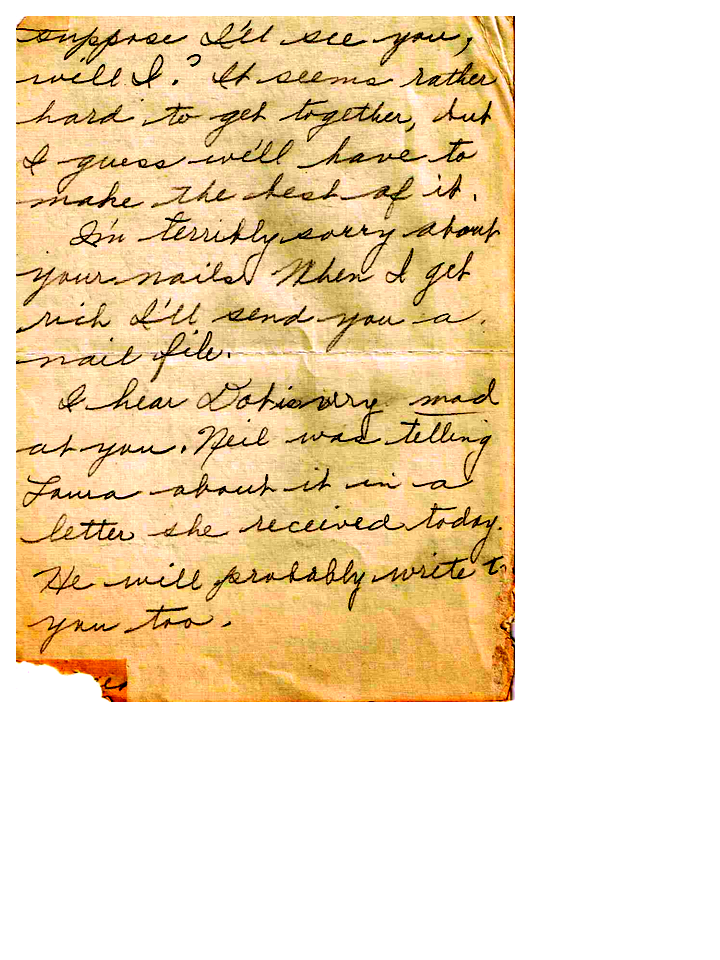 suppose I'll see you,
will I.? It seems rather
hard to get together, but
I guess we'll have to
make the best of it.
I'm terribly sorry about
your nails. When I get
rich I'll send you a
nail file.
I hear Dot is very mad
at you. Neil was telling
Laura about it in a
letter she received today.
He will probably write to
you too.